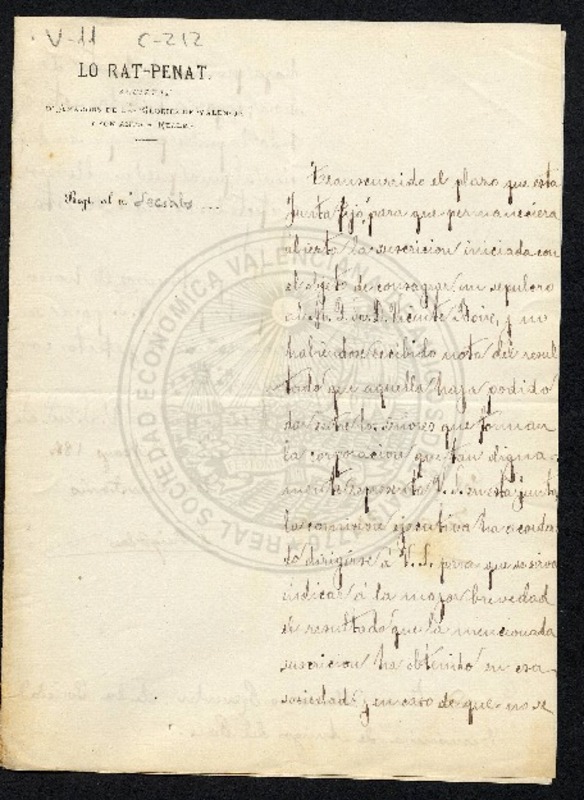 V-11 C-212
LO RAT-PENAT.
D'AMADORS DE LES GLORIES DE VALENCIA
Regt. al nº
Transcurrido el plazo que esta
Junta fijó para que permaneciera
abierta la suscricion iniciada con
el objeto de consagrar un sepulcro
al Sr. D. Vicente Boix, y no
habiéndose recibido nota del resul
tado que aquella haya podido
dar entre los Señores que forman
la corporacion que tan digna-
mente representa V. S. en esta junta
la comision ejecutiva ha acorda
do dirigirse á V. S. para que se sirva
indicar á la mayor brevedad
el resultado que la mencionada
suscricion ha obtenido en esa
sociedad y en caso de que no se
REAL SOCIEDAD ECONOMICA VALENCIANA